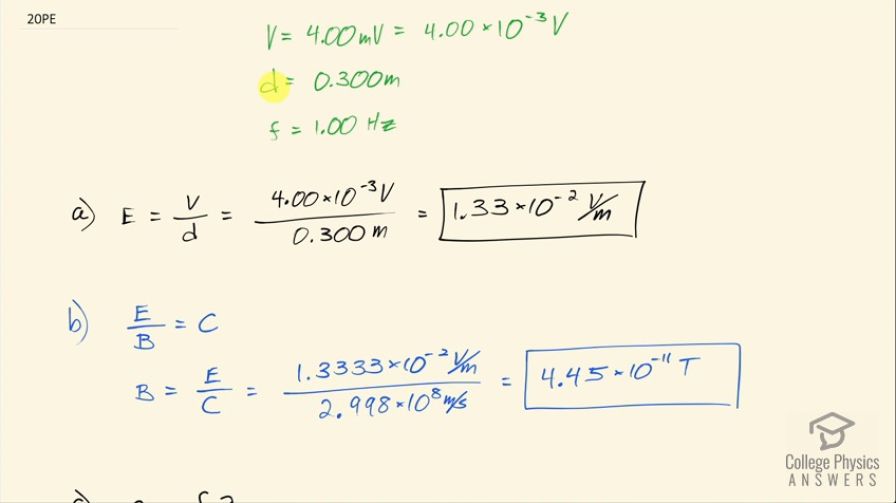 20PE
V = 4.00 mV = 4.00 × 10⁻³ V
d = 0.300m
f = 1.00 Hz
a) E = V/d = 4.00×10⁻³V / 0.300 m = 1.33×10⁻² V/m
b) E/B = C
B = E/C = 1.3333×10⁻² V/m / 2.998×10⁸ m/s = 4.45×10⁻¹¹ T
College Physics
ANSWERS